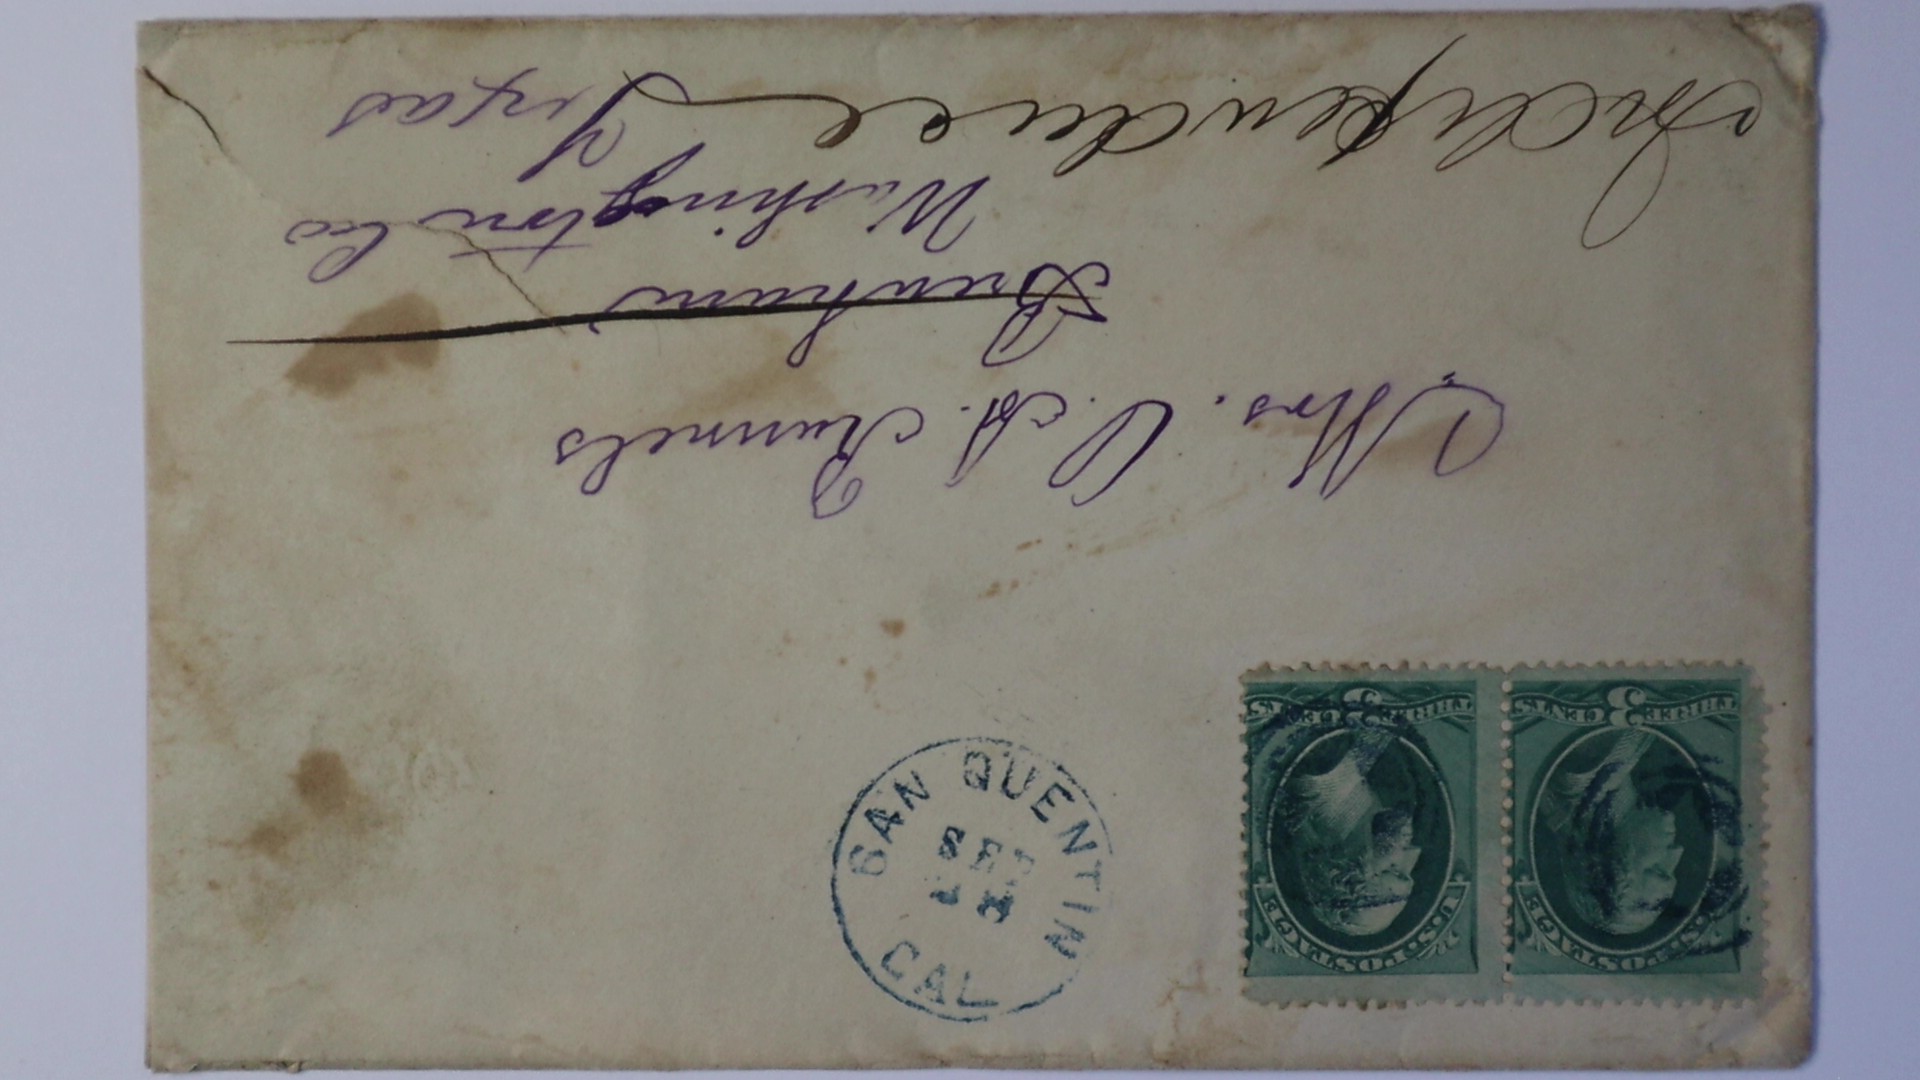 Mrs. V. A. Runnels
Brenham
Washington Co
Texas
Independence
SAN QUENTIN
SEP
CAL
U.S. POSTAGE
THREE 3 CENTS
U.S. POSTAGE
THREE 3 CENTS